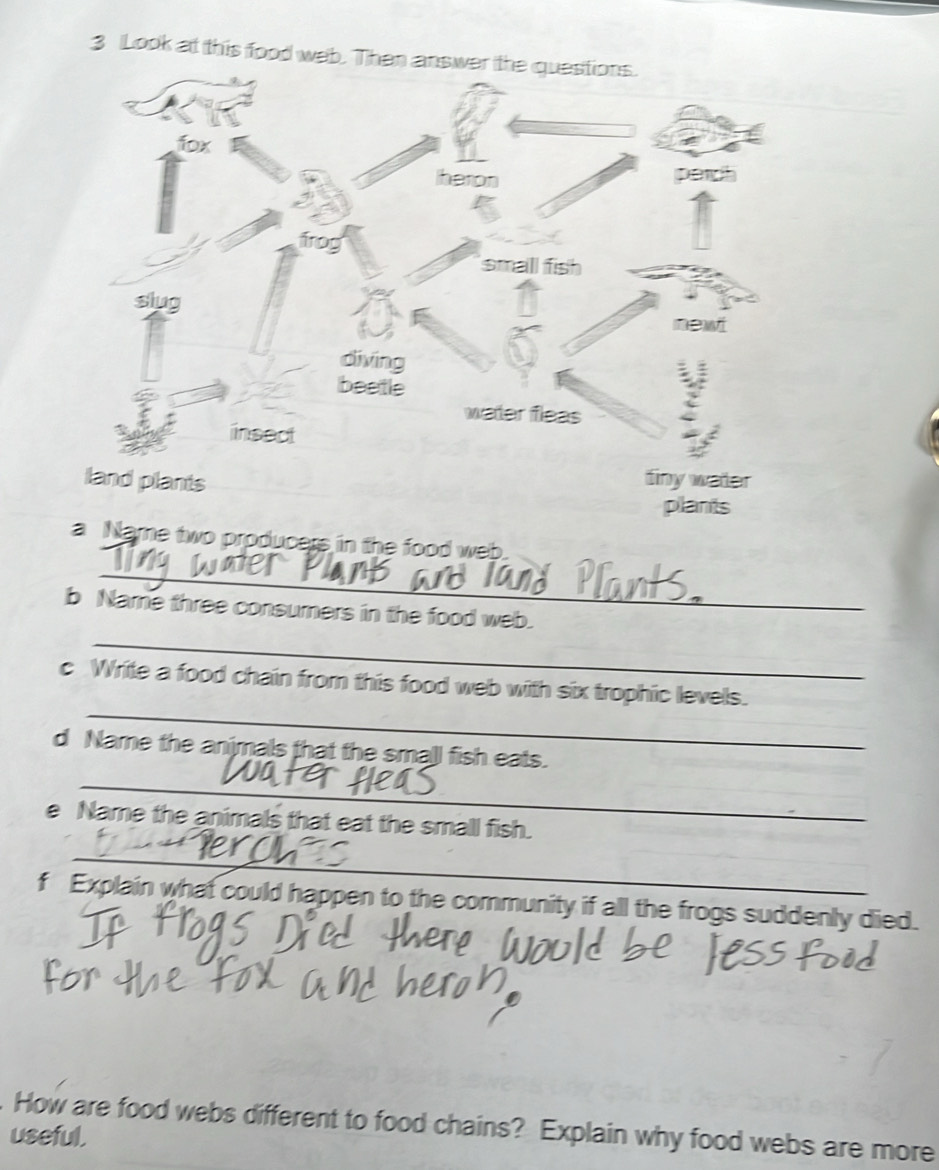 3 Look at this food web. Then answer the questions.
fox
heron
perch
frog
small fish
slug
newt
diving
beetle
water fleas
insect
land plants
tiny water
plants
a Name two producers in the food web.
Tiny water Plants and land Plants.
b Name three consumers in the food web.
c Write a food chain from this food web with six trophic levels.
d Name the animals that the small fish eats.
water fleas
e Name the animals that eat the small fish.
Perch
f Explain what could happen to the community if all the frogs suddenly died.
If frogs Died there would be less food
for the fox and heron.
How are food webs different to food chains? Explain why food webs are more
useful.